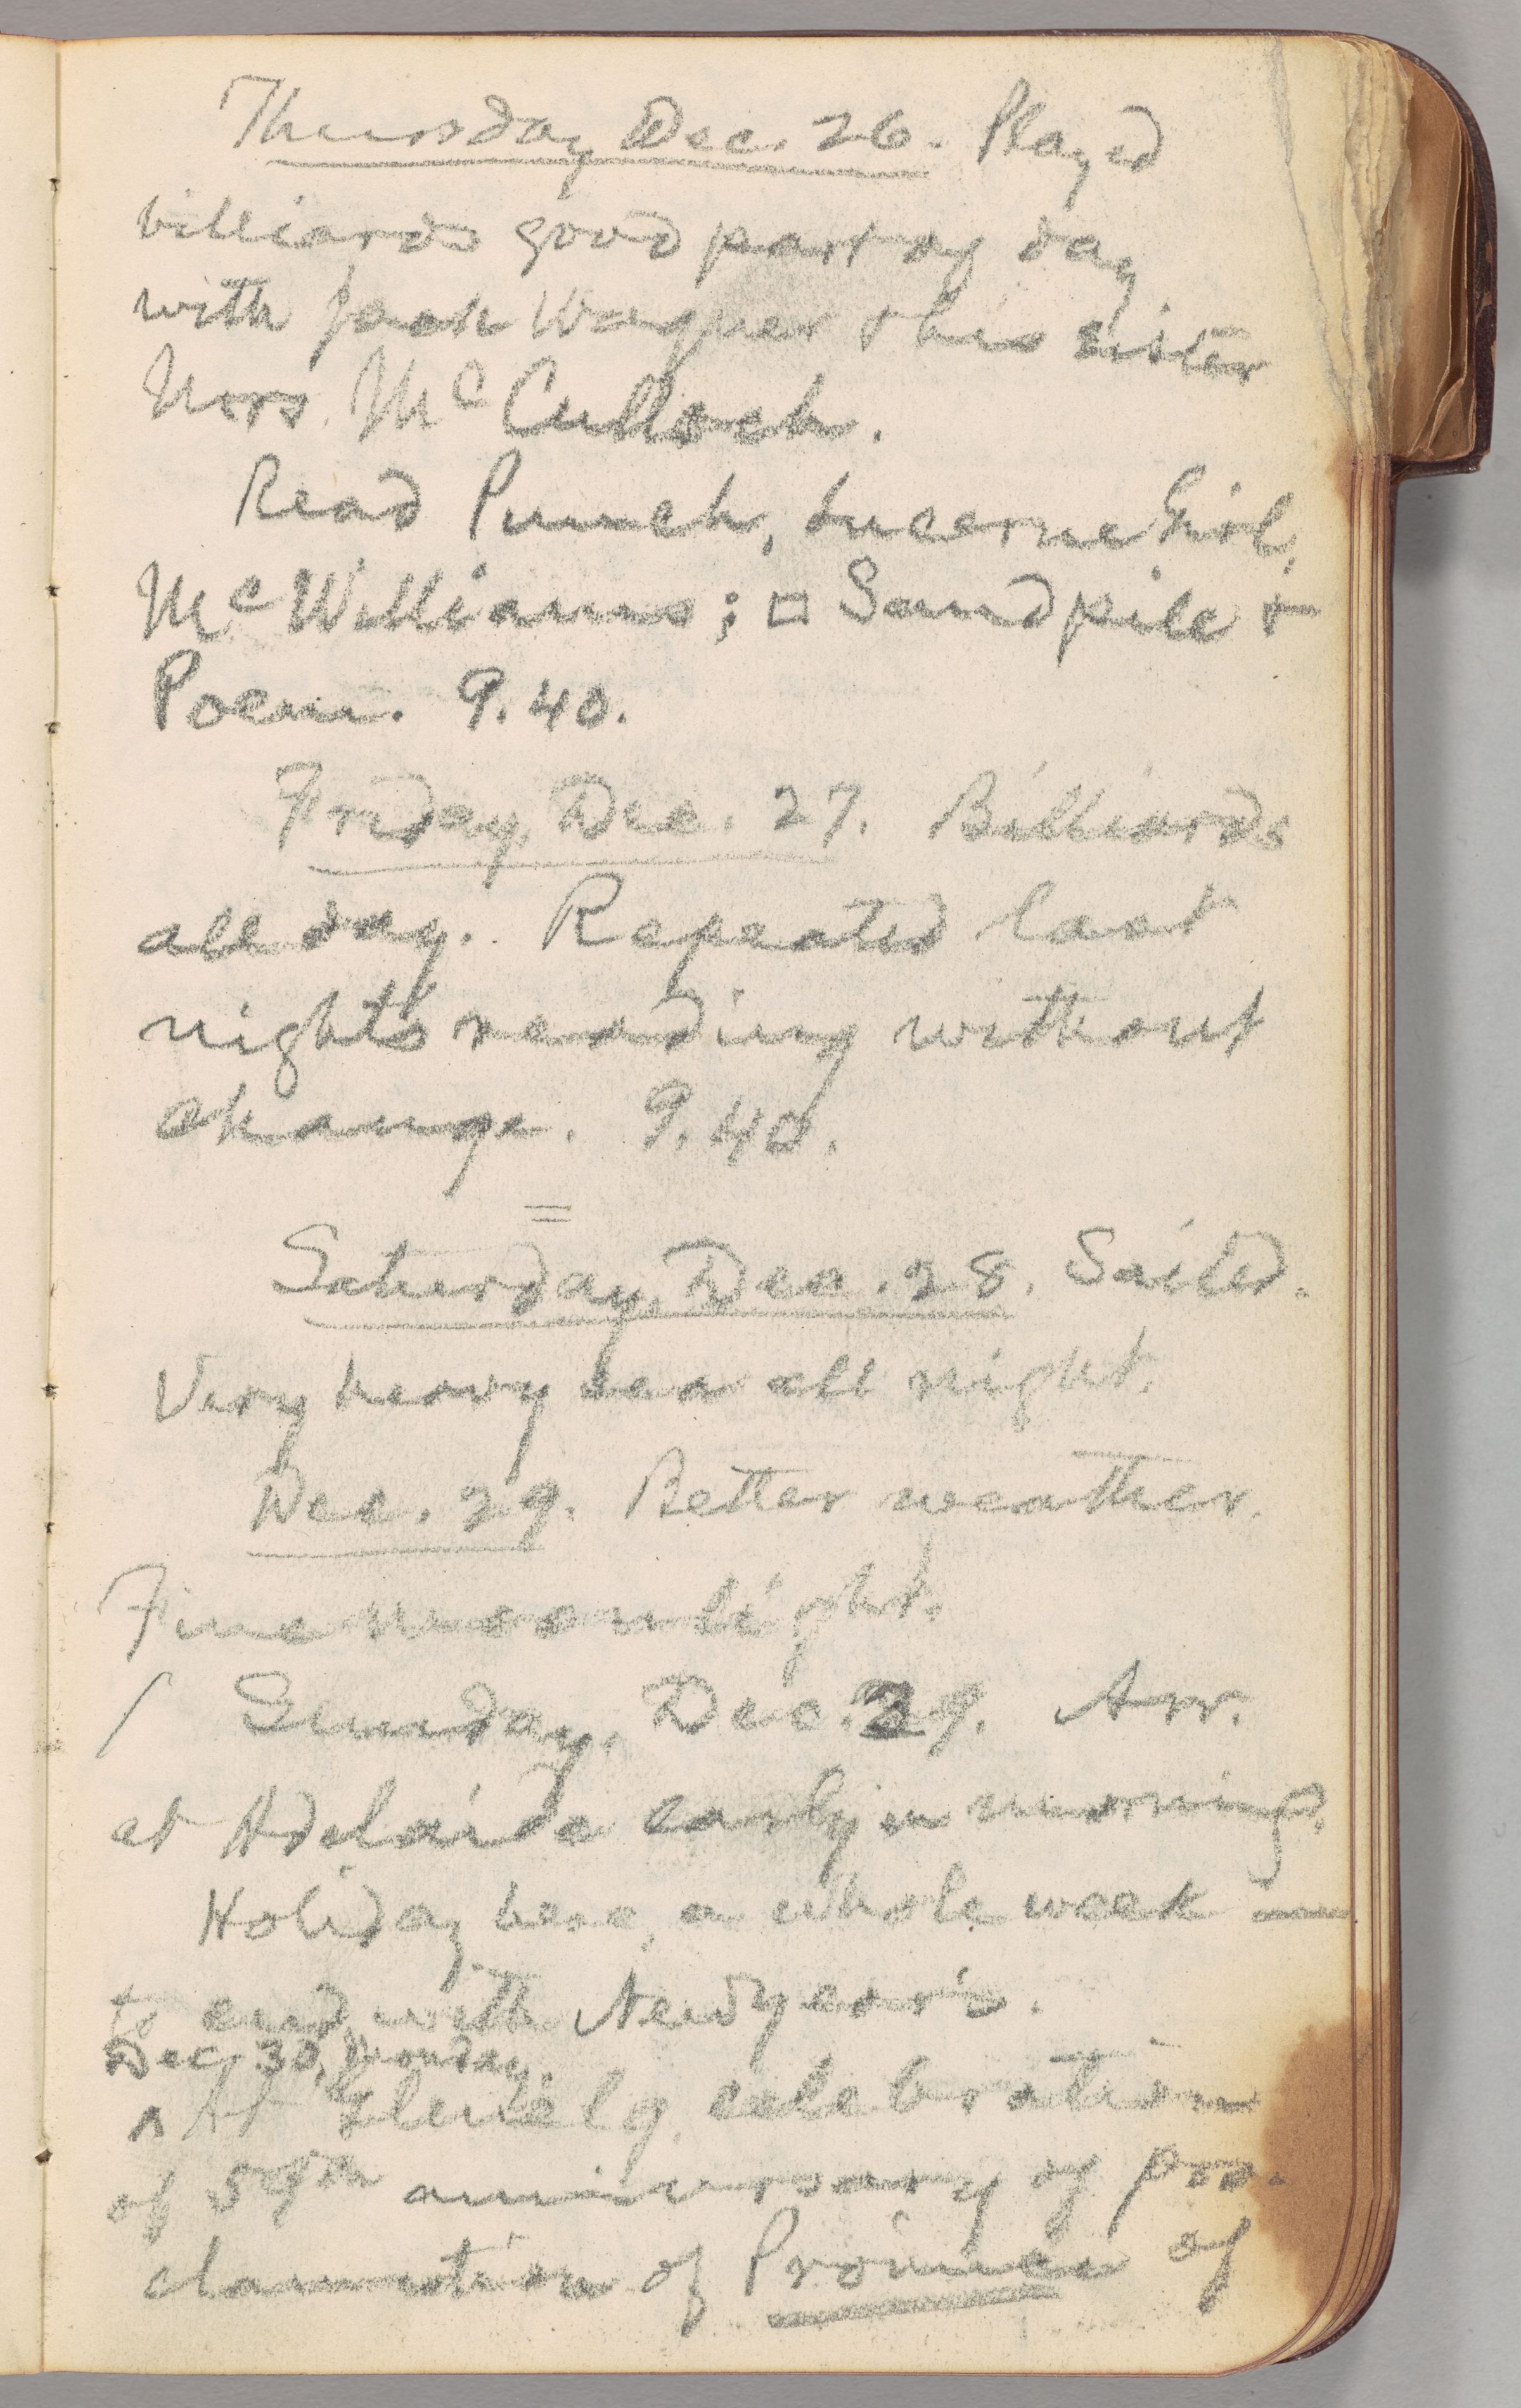 Thursday Dec. 26. Played
billiards good part of day
with Jack Wagner & his sister
Mrs. McCulloch.
Read Punch, Lucerne Girl,
McWilliams; □ Sandpile &
Poem. 9.40.
Friday, Dec. 27. Billiards
all day. Repeated last
night's reading without
change. 9.40.
=
Saturday, Dec. 28. Sailed.
Very heavy sea all night.
Dec. 29. Better weather.
Fine moonlight.
/ Sunday, Dec. 29. Arr.
at Adelaide early in morning.
Holiday here, a whole week —
to end with Newyear's.
Dec 30, Monday.
^ At Glenelg, celebration
of 59th anniversary of pro-
clamation of Province of